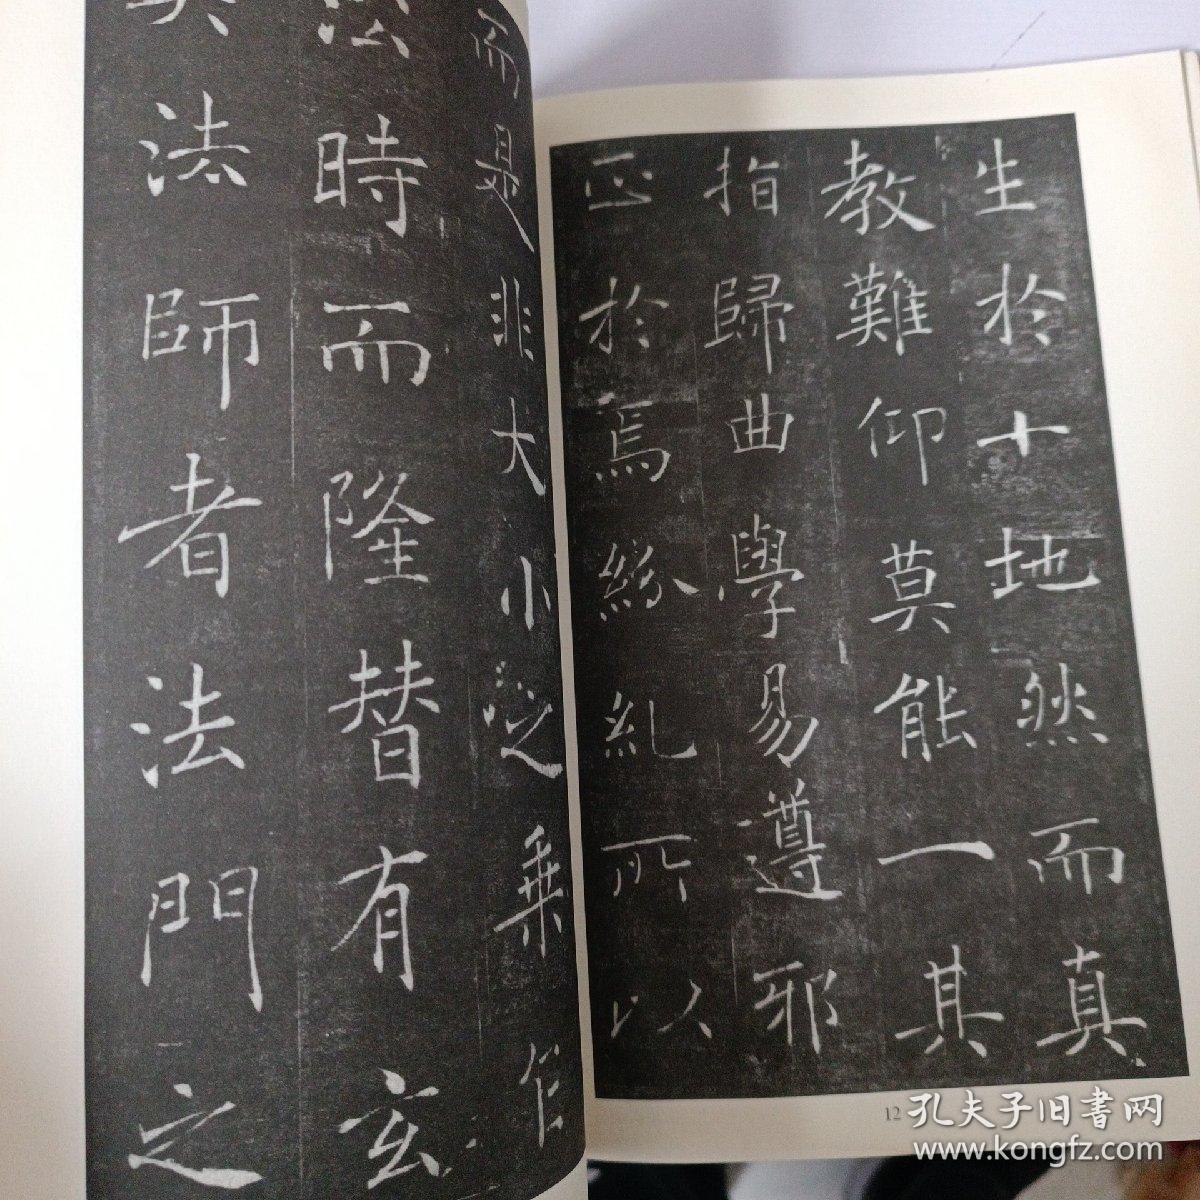 生於十地然而真
教難仰莫能一其
指歸曲學易遵邪
正於焉紛糺所以
而是非大小之乘乍
沿時而隆替有玄
奘法師者法門之
12
孔夫子旧書网
www.kongfz.com